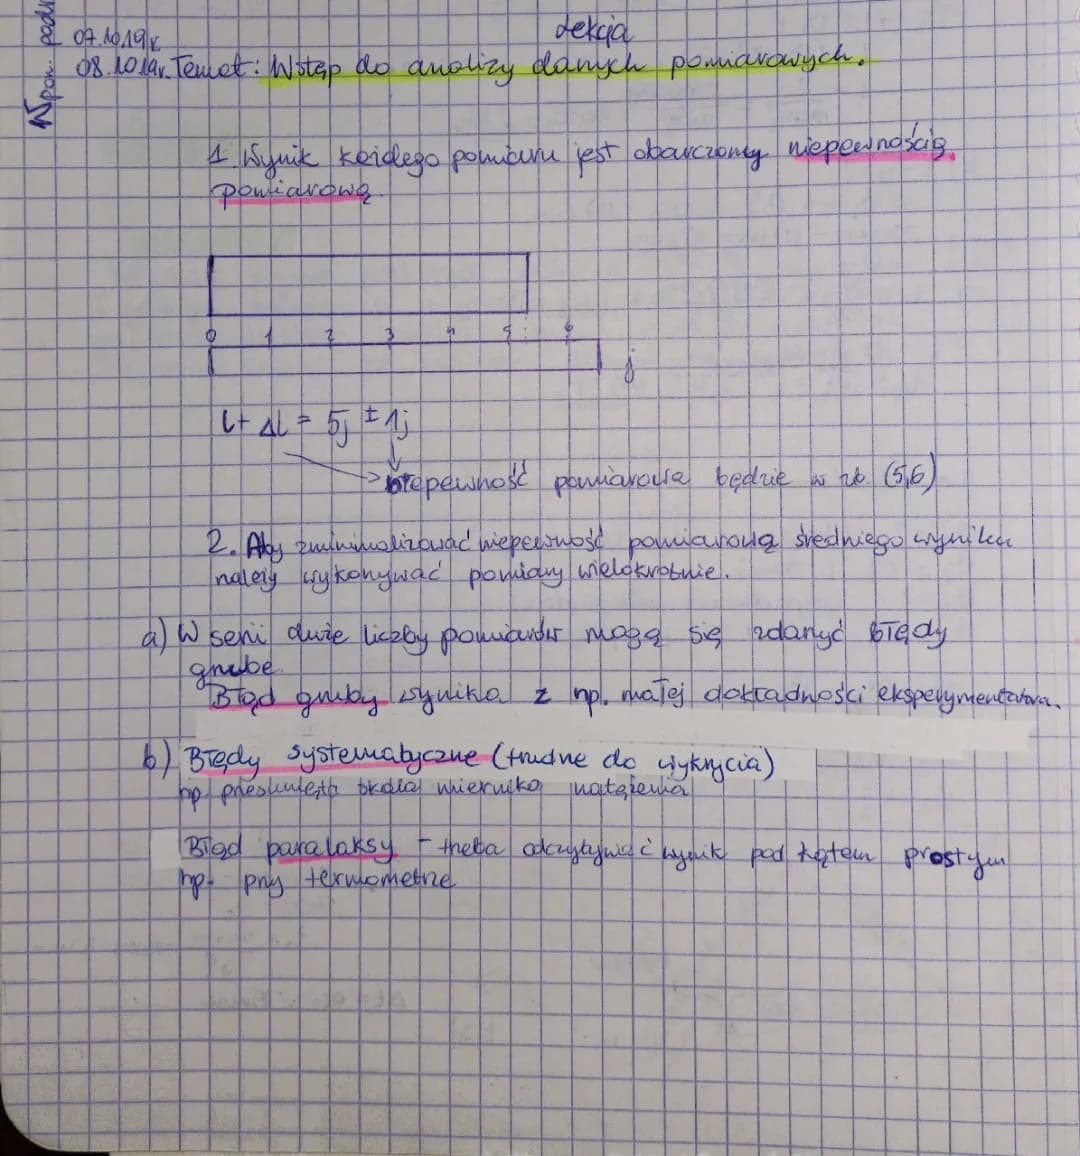 07.10.19r. Lekcja
08.10.19r. Temat: Wstęp do analizy danych pomiarowych.
1. Wynik każdego pomiaru jest obarczony niepewnością
pomiarową.
0 1 2 3 4 5 6
j
l + Δl = 5j ± 1j
niepewność pomiarowa będzie w zb. (5,6)
2. Aby zminimalizować niepewność pomiarową średniego wyniku
należy wykonywać pomiary wielokrotnie.
a) W serii duże liczby pomiarów mogą się zdarzyć błędy
grube
Błąd gruby wynika z np. małej dokładności eksperymentatora.
b) Błędy systematyczne (trudne do wykrycia)
np. przesunięta skala miernika natężenia
Błąd paralaksy - trzeba odczytywać wynik pod kątem prostym
np. przy termometrze